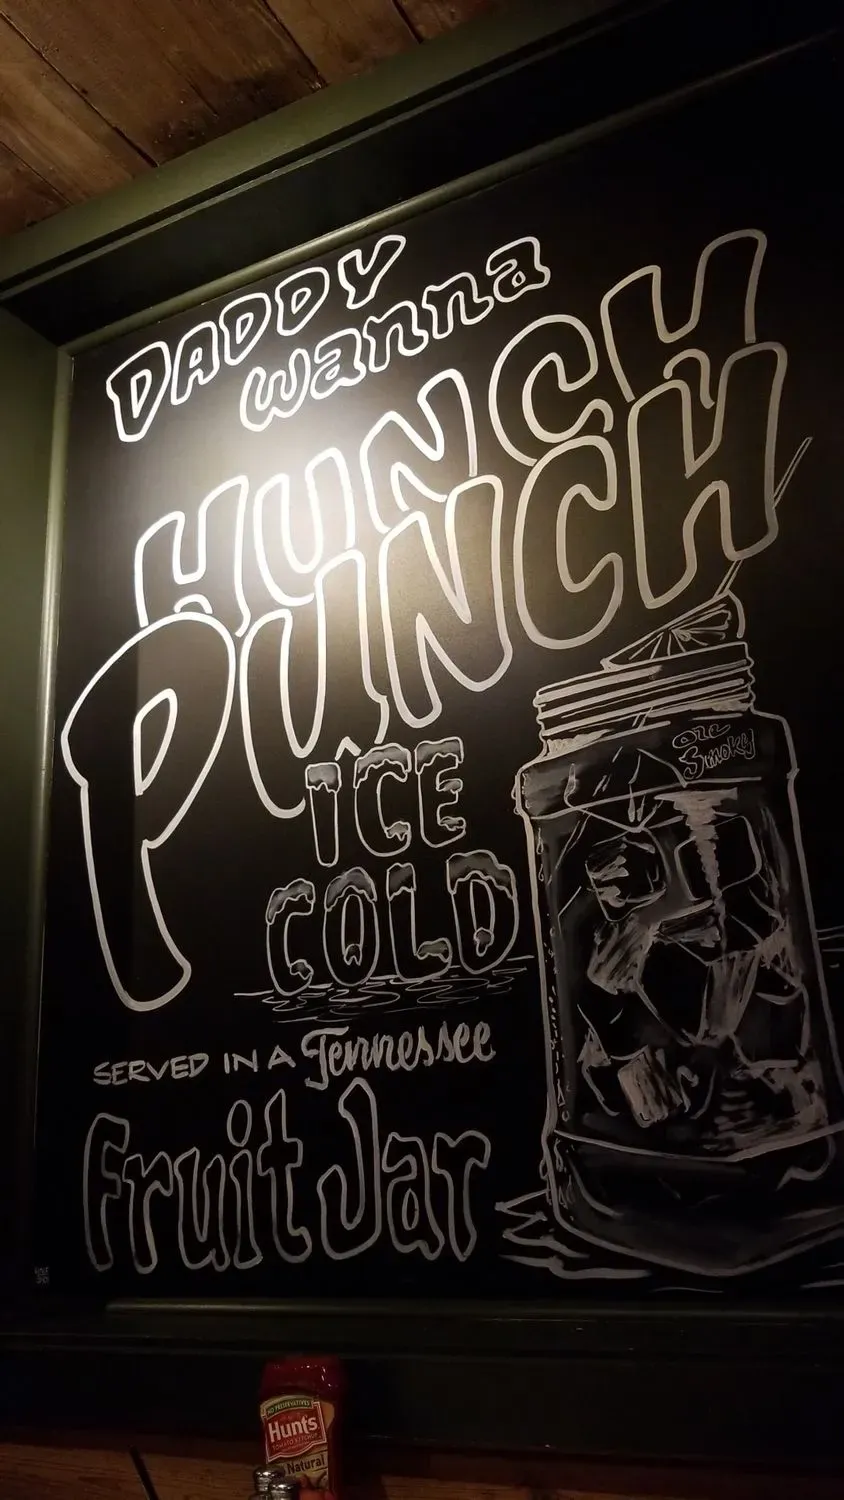 DADDY
wanna
HUNCH
PUNCH
ICE
COLD
Ole
Smoky
SERVED IN A Tennessee
Fruit Jar
NO PRESERVATIVES
Hunt's
TOMATO KETCHUP
Natural